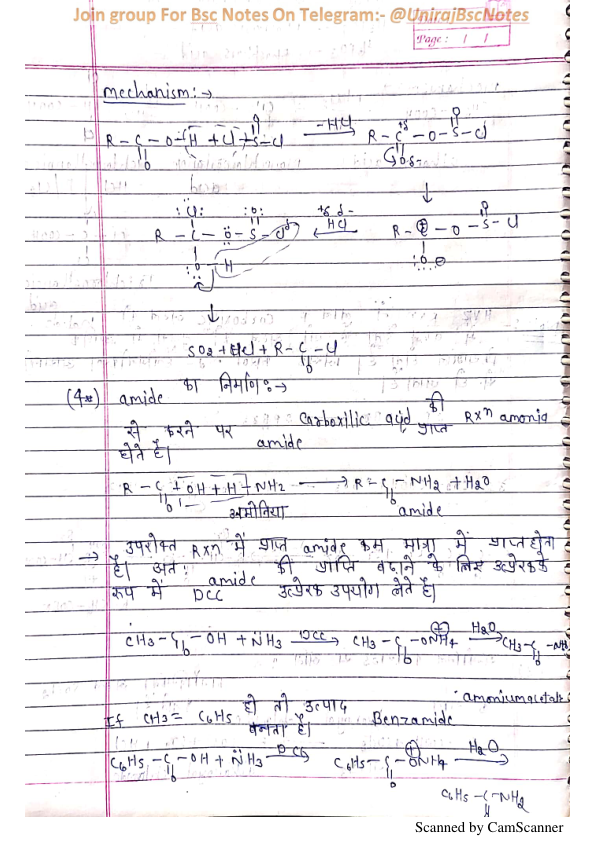 Join group For Bsc Notes On Telegram:- @UnirajBscNotes
Page: / /
mechanism:→
R-C-O-H + Cl-S-Cl -HCl→ R-C-O-S-Cl
O O O
R-C-O-S-Cl HCl R-C-O-S-Cl
O-H :O:
SO2 + HCl + R-C-Cl
O
(4) amide का निर्माण:→
Carboxilic acid की Rxn amonia
से करने पर amide प्राप्त
होते है।
R-C-OH + H-NH2 → R-C-NH2 + H2O
O O
अमोनिया amide
→ उपरोक्त Rxn में प्राप्त amide कम मात्रा में प्राप्त होता
है। अतः amide की प्राप्ति बढाने के लिए उत्प्रेरक के
रूप में DCC उत्प्रेरक उपयोग लेते है।
CH3-C-OH + NH3 DCC→ CH3-C-ONH4 H2O→ CH3-C-NH
O O O
amoniumacetate
If CH3 = C6H5 हो तो उत्पाद Benzamide
बनता है।
C6H5-C-OH + NH3 DCC→ C6H5-C-ONH4 H2O→
O O
C6H5-C-NH2
Scanned by CamScanner